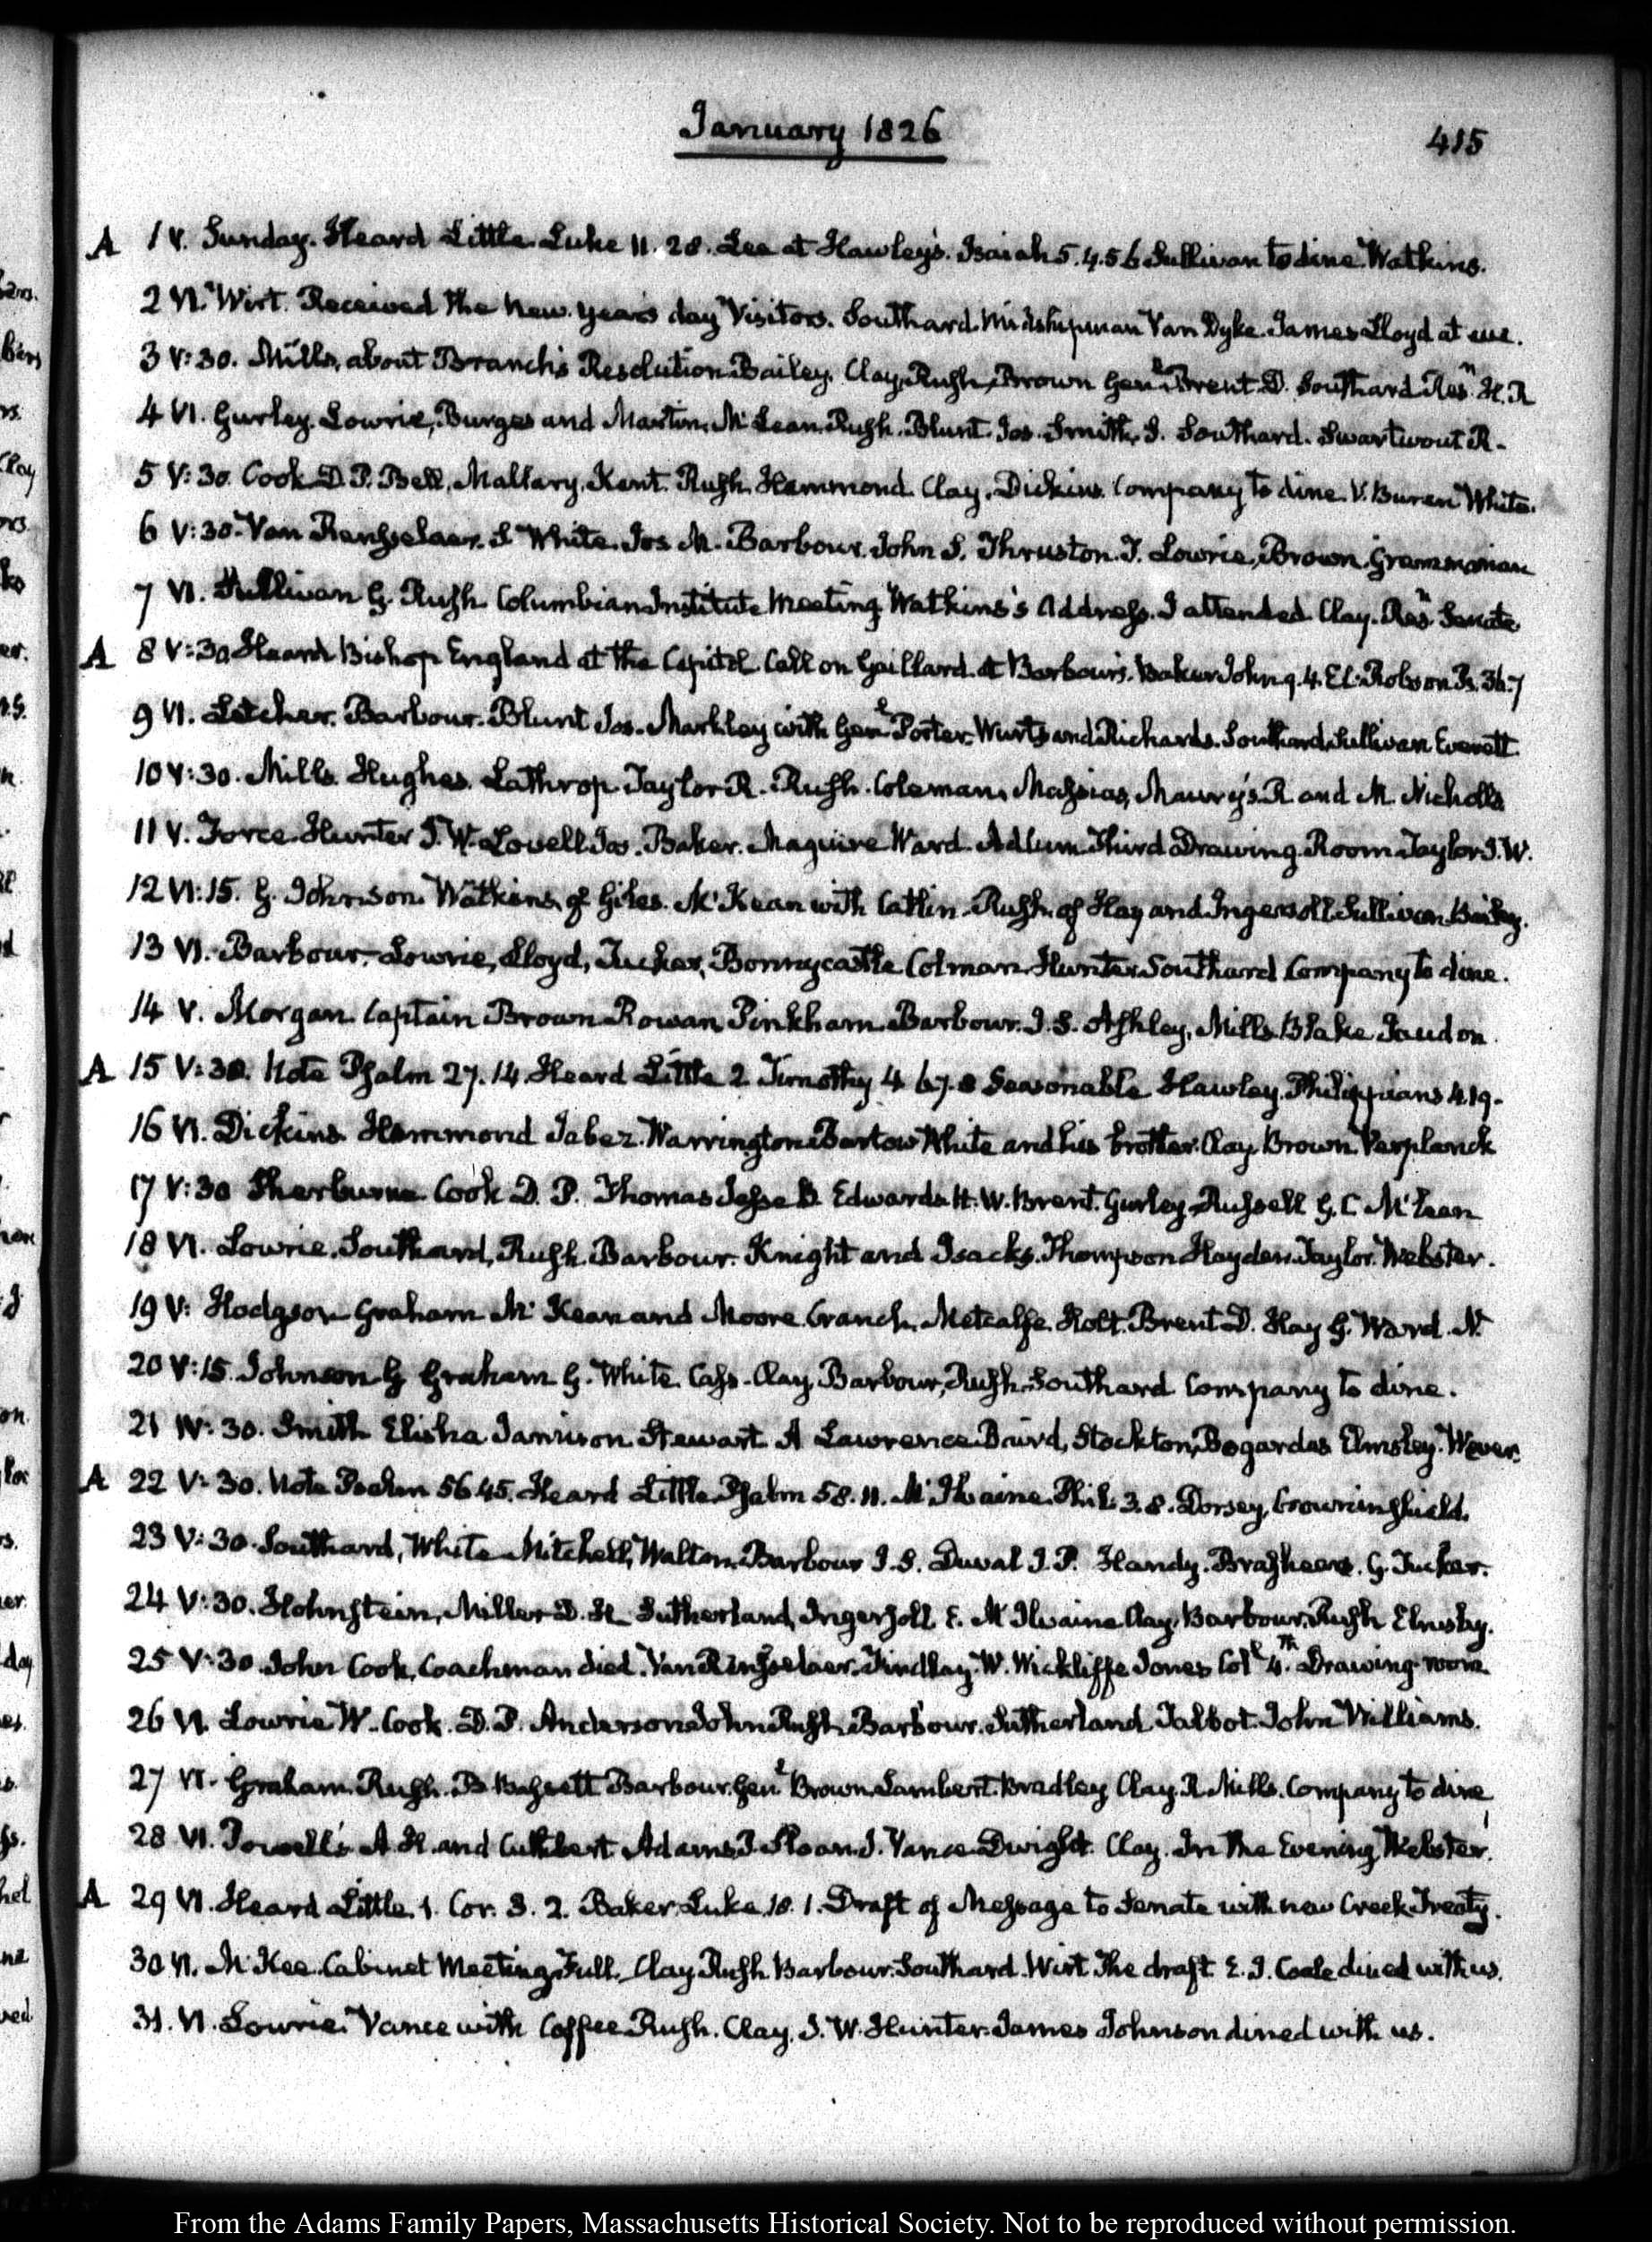 January 1826
415
A 1 V. Sunday. Heard Little. Luke 11. 28. Lee at Hawley's. Isaiah 5. 4.5 6 Sullivan to dine. Watkins.
2 VI. Wirt. Received the New Year's day Visitors. Southard. Midshipman Van Dyke. James Lloyd at eve.
3 V:30. Mills, about Branch's Resolution. Bailey. Clay, Rush, Brown Genl. Brent. D. Southard Resn. H.R
4 VI. Gurley. Lowrie, Burges and Martin. McLean. Rush. Blunt. Jos. Smith, S. Southard. Swartwout R.
5 V:30. Cook D. P. Bell, Mallary, Kent. Rush. Hammond. Clay, Dickins. Company to dine V. Buren White.
6 V:30. Van Rensselaer. S. White. Jos. M. Barbour. John S. Thruston. T. Lowrie, Brown. Grammarian
7 VI. Sullivan G. Rush. Columbian Institute Meeting Watkins's Address. I attended. Clay. Resn. Senate
A 8 V:30 Heard Bishop England at the Capitol. Call on Gaillard. at Barbour's. Baker John 9. 4. El. Robson Ps. 36.7
9 VI. Letcher. Barbour. Blunt Jos. Markley with Genl. Porter. Wurts and Richards. Southard. Sullivan Everett
10 V:30. Mills. Hughes. Lathrop Taylor R. Rush. Coleman. Massias, Maury's. R and M. Nicholls
11 V. Force. Hunter J. W. Lovell Jos. Baker. Maguire Ward. Adlum. Third Drawing Room Taylor J. W.
12 VI:15. G. Johnson. Watkins, of Giles. McKean with Catlin. Rush. of Hay and Ingersoll. Sullivan Bailey.
13 VI. Barbour. Lowrie, Lloyd, Tucker, Bonnycastle Colman. Hunter Southard Company to dine.
14 V. Morgan. Captain Brown. Rowan, Pinkham. Barbour. J. S. Ashley, Mills. Blake Jaudon.
A 15 V:30. Note Psalm 27. 14. Heard Little 2. Timothy 4 6 7. 8 Seasonable Hawley. Philippians 4.19.
16 VI. Dickins. Hammond Jabez. Warrington. Bartow White and his brother. Clay. Brown. Verplanck
17 V:30 Sherburne Cook D. P. Thomas Jesse B. Edwards H. W. Brent. Gurley. Russell G. C McLean
18 VI. Lowrie. Southard, Rush. Barbour. Knight and Isacks. Thompson Hayden. Taylor. Webster.
19 V: Hodgson Graham McKean and Moore. Cranch, Metcalfe. Holt. Brent D. Hay G. Ward. N.
20 V:15. Johnson G Graham G. White. Cass. Clay, Barbour, Rush. Southard Company to dine.
21 IV:30. Smith Elisha Janvison Stewart. A Lawrence. Baird, Stockton, Bogardus Elmsley. Wever.
A 22 V:30. Note Psalm 56 4 5. Heard Little. Psalm 58. 11. McIlvaine. Phil. 3. 8. Dorsey, Crowninshield.
23 V:30. Southard, White Mitchell, Walton. Barbour J. S. Duval J. P. Handy. Brashears. G. Tucker.
24 V:30. Hohnstein, Miller D. H. Sutherland, Ingersoll E. McIlvaine Clay, Barbour, Rush Elmsley.
25 V:30 John Cook, Coachman died. Van Renssselaer. Findlay. W. Wickliffe Jones Coll. 4.th Drawing room.
26 VI. Lowrie W. Cook. D. P. Anderson John Rush. Barbour. Sutherland Talbot. John Williams.
27 VI. Graham. Rush. B Bassett Barbour. Genl. Brown. Lambert. Bradley Clay. R Mills. Company to dine
28 VI. Powell's A. H. and Cuthbert Adams J. Sloan. J. Vance. Dwight. Clay. In the Evening Webster.
A 29 VI. Heard Little. 1. Cor. 3. 2. Baker. Luke 18. 1. Draft of Message to Senate with new Creek Treaty.
30 VI. McKee. Cabinet Meeting Full. Clay Rush Barbour. Southard. Wirt The draft. E. J. Coale dined with us.
31. VI. Lowrie. Vance with Coffee. Rush. Clay. J. W. Hunter. James Johnson dined with us.
From the Adams Family Papers, Massachusetts Historical Society. Not to be reproduced without permission.